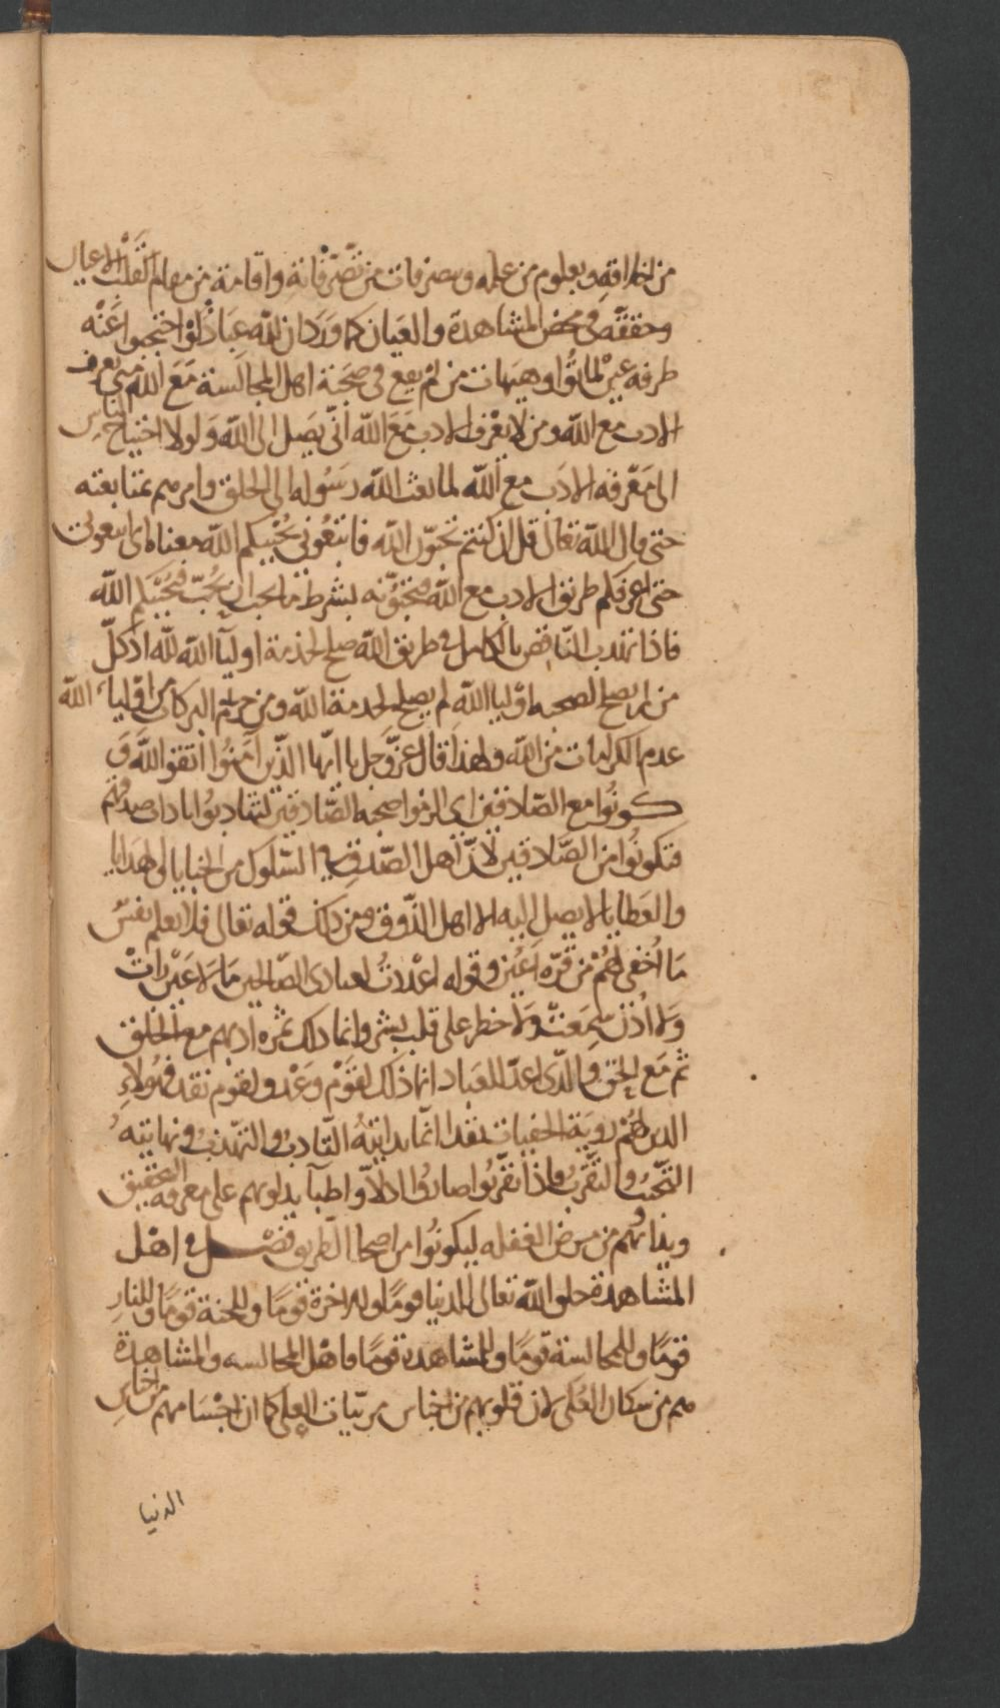 من اخلاقه وبعلوم من علمه وبصرفات من تصرفاته واقامة من مقام القلب الاعيان
وحققه فى محض المشاهدة والعيان كما ورد ان لله عباد لو احتجبوا عنه
طرفة عين لماتوا وهيهات من لم يقع فى صحبة اهل المجالسة مع الله متى يعرف
الادب مع الله ومن لا يعرف الادب مع الله انى يصل الى الله ولولا احتياج الناس
الى معرفة الادب مع الله لما بعث الله رسوله الى الخلق وامرهم بمتابعته
حتى قال الله تعالى قل ان كنتم تحبون الله فاتبعونى يحببكم الله معناه اى اتبعونى
حتى اعرفكم طريق الادب مع الله فتحبونه بشرط ما يجب ان يحب فيحببكم الله
فاذا تهذب الناقص بالكامل فى طريق الله صلح لخدمة اوليآ الله لله اذ كل
من لم يصلح لصحبه اوليا الله لم يصلح لخدمة الله ومن حرم البركات من اوليا الله
عدم الكرامات من الله ولهذا قال عز وجل يا ايها الذين آمنوا اتقوا الله و
كونوا مع الصادقين اى الزموا صحبه الصادقين لتتادبوا باداب صدقهم
فتكونوا من الصادقين لان اهل الصدق فى السلوك من الخبايا والهدايا
والعطايا لا يصل اليه الا اهل الذوق ومن ذلك قوله تعالى فلا تعلم نفس
ما اخفى لهم من قرة اعين وقوله اعددت لعبادى الصالحين ما لا عين رات
ولا اذن سمعت ولا خطر على قلب بشر وانما ذلك ثمره ادبهم مع الخلق
ثم مع الحق والذى اعد للعباد انما ذلك لقوم وعد ولقوم نقد فهولاء
الذين لهم روية الخفيات نقدا انما بدايته التادب والتهذب ونهايته
التحبب والتقرب فاذا تقربوا صاروا ادلآ واطبآ يدلونهم على معرفة التحقيق
ويداونهم من مرض الغفله ليكونوا من اصحاب الطريق فصل فى اهل
المشاهدة خلق الله تعالى للدنيا قوما وللاخرة قوما وللجنة قوما وللنار
قوما وللمجالسة قوما وللمشاهدة قوما فاهل المجالسه والمشاهدة
هم من سكان العلى لان قلوبهم من اجناس مرتبات العلى كما ان اجسامهم من اجناس
الدنيا